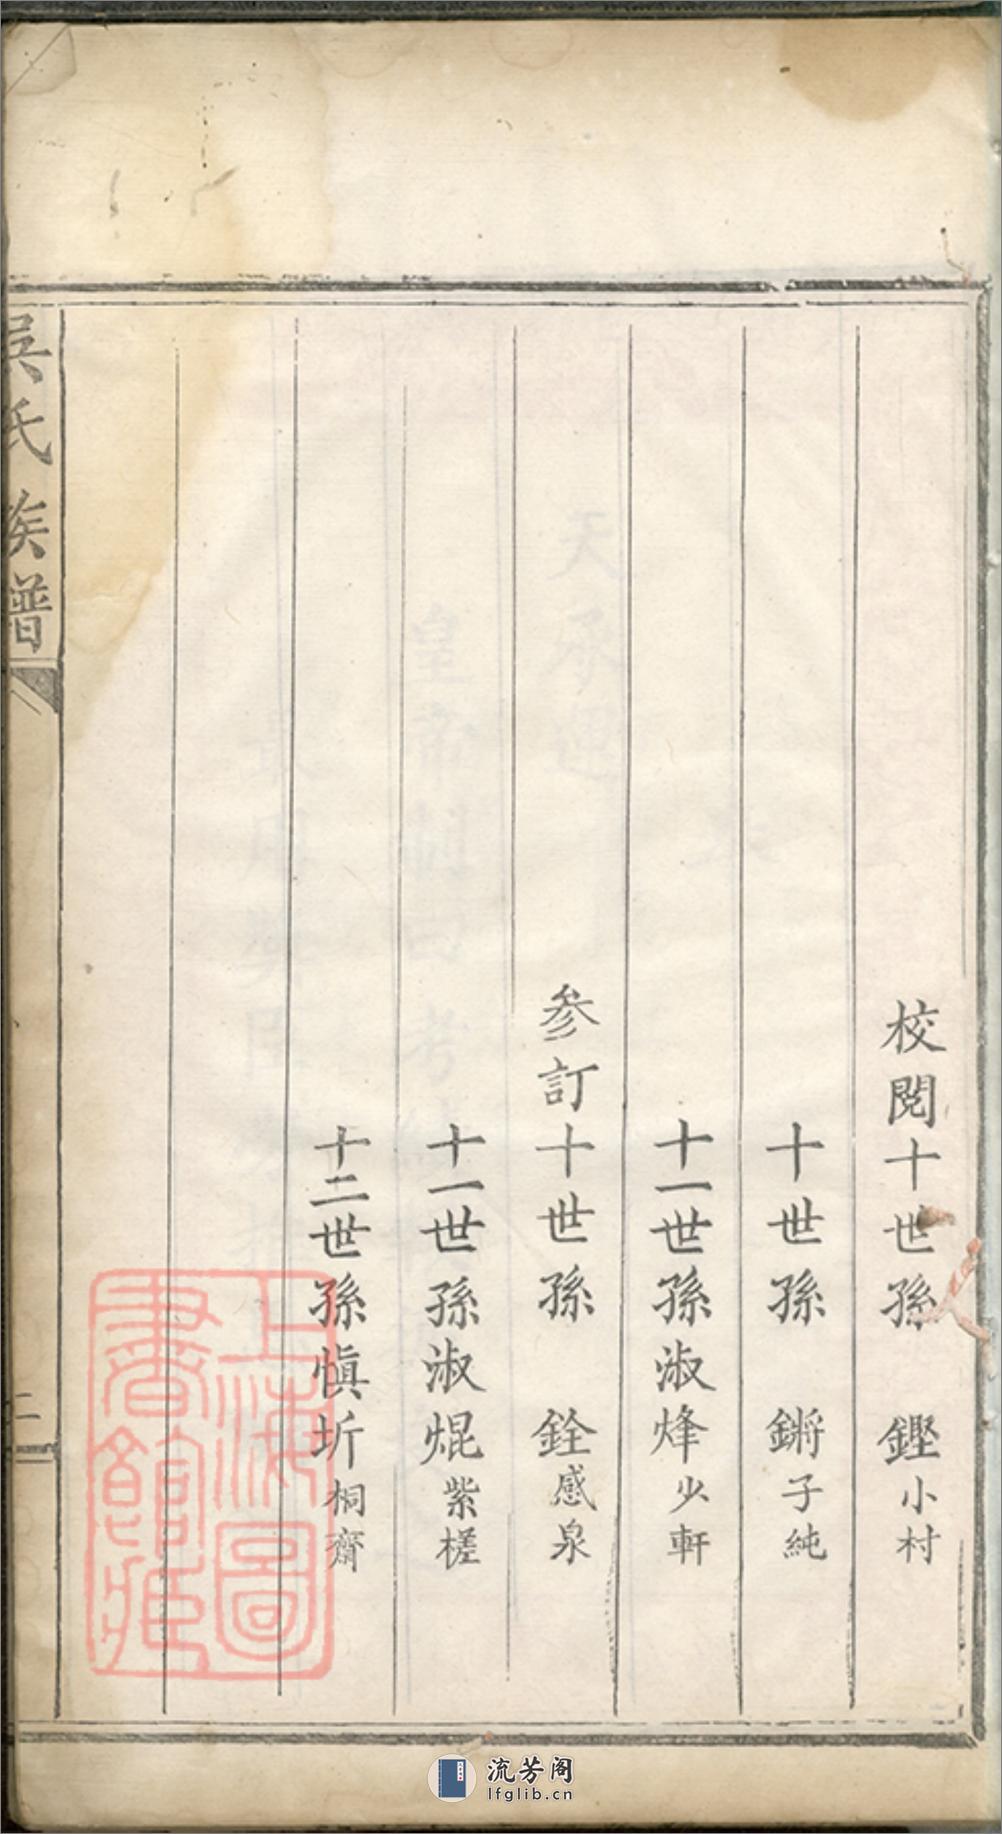 校閱十世孫 鏗小村
十世孫 鏘子純
十一世孫淑烽少軒
參訂十世孫 銓感泉
十一世孫淑焜紫槎
十二世孫慎圻桐齋
吳氏族譜
二
上海圖書館藏
流芳阁
lfglib.cn